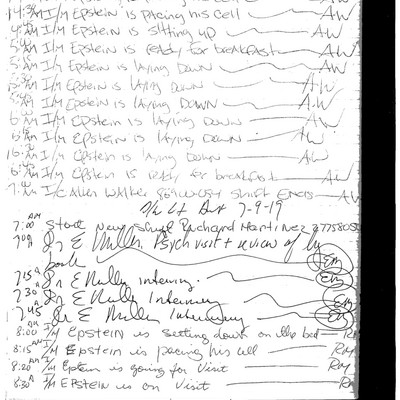 I/M Epstein is pacing his cell AW
AM I/M Epstein is sitting up AW
AM I/M Epstein is ready for breakfast AW
AM I/M Epstein is laying down AW
AM I/M Epstein is laying down AW
AM I/M Epstein is laying down A.W
AM I/M Epstein is laying down AW
AM I/M Epstein is laying down A.W
AM I/M Epstein is laying down AW
AM I/M Epstein is ready for breakfast AW
AM I/C Allen Walker shift Ends AW
7-9-19
7:00 AM Start New Richard Martinez
Dr E Miller, Psych visit & review of log
book
7:15 A Dr E Miller Interview. EM
7:30 A Dr E Miller Interview EM
7:45 Dr E Miller Interview EM
8:00 AM I/M Epstein is setting down on the bed RM
8:15 AM I/M Epstein is pacing his cell RM
8:20 AM I/M Epstein is going for Visit RM
8:30 A I/M Epstein is on Visit RM